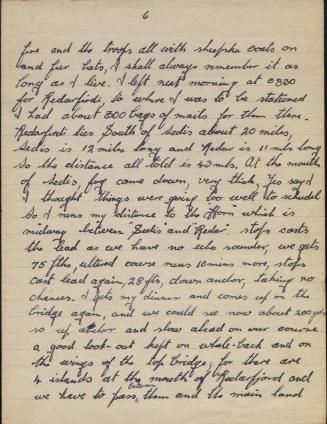 6
fire and the troops all with sheepskin coats on
and fur hats, I shall always remember it as
long as I live. I left next morning at 0330
for Redarfirdi, to where I was to be stationed
I had about 300 bags of mails for them there.
Redarfirdi lies South of Sedis about 20 miles,
Sedis is 12 miles long and Redar is 11 mls long
so the distance all told is 43 mls. At the mouth
of Sedis, fog came down, very thick, Yes say I
I thought things were going too well to schedul
so I runs my distance to the Horn which is
midway between Sedis and Redar stops casts
the lead as we have no echo sounder, we gets
75 fths, altered course runs 10 mins more, stops
cast lead again, 28 fts, down anchor, taking no
chances. I gets my dinner and comes up on the
bridge again, and we could see now about 200 yds
so up anchor and slow ahead on our course
a good look-out kept on whale-back and on
the wings of the top bridge, for there are
4 islands at the mouth of Redarfjord and
we have to pass between them and the main land